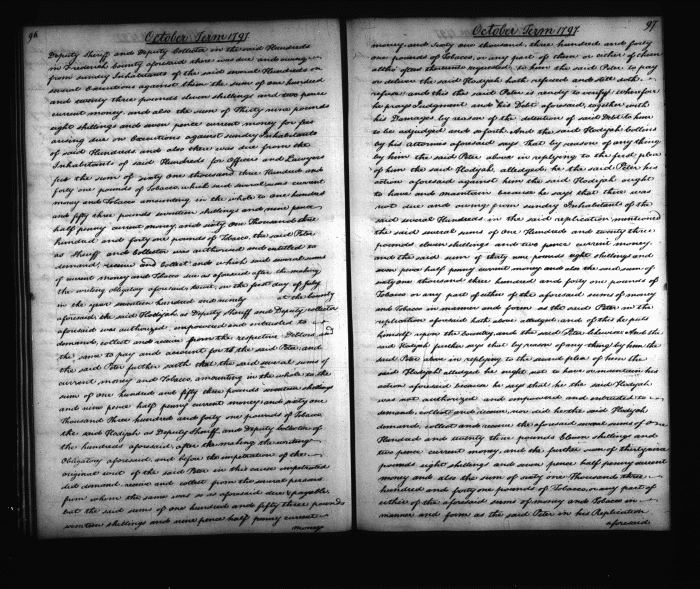 96
October Term 1797
Deputy Sheriff and Deputy Collector in the said Hundreds
in Frederick County aforesaid there was due and owing
from sundry Inhabitants of the said several Hundreds on
several Executions against them the sum of one hundred
and twenty three pounds eleven shillings and two pence
current money, and also the sum of Thirty nine pounds
eight shillings and seven pence current money for fees
arising due on Executions against sundry Inhabitants
of said Hundreds and also there was due from the
Inhabitants of said Hundreds for Officers and Lawyers
fees the sum of sixty one thousand three Hundred and
forty one pounds of Tobacco, which said several sums current
money and Tobacco amounting in the whole to one hundred
and fifty three pounds seventeen shillings and nine pence
half penny current money, and sixty one Thousand three
hundred and forty one pounds of Tobacco, the said Peter
as Sheriff and Collector was authorized and entitled to
demand, receive and collect and which said several sums
of current money and Tobacco due as aforesaid after the making
the writing obligatory aforesaid to wit, on the first day of July
in the year seventeen hundred and ninety at the County
aforesaid, the said Hodijah as Deputy Sheriff and Deputy collector
aforesaid was authorized, empowered and intrusted to
demand, collect and receive from the respective Debtors and
the same to pay and account for to the said Peter, and
the said Peter further saith that the said several sums of
current money and Tobacco, amounting in the whole to the
sum of one hundred and fifty three pounds seventeen shillings
and nine pence half penny current money, and sixty one
Thousand Three hundred and forty one pounds of Tobacco
the said Hodijah as Deputy Sheriff, and Deputy Collector of
the hundreds aforesaid, after the making the writing
Obligatory aforesaid, and before the impetration of the
original writ of the said Peter in this cause impetrated
did demand, receive and collect from the several persons
from whom the same was so as aforesaid due & payable
but the said sums of one hundred and fifty three pounds
seventeen shillings and nine pence half penny current
money
97
October Term 1797
money and sixty one thousand, three hundred and forty
one pounds of Tobacco, or any part of them or either of them
altho' often thereunto requested, to him the said Peter to pay
or deliver the said Hodijah hath refused and still doth
refuse and this the said Peter is ready to verify wherefore
he prays Judgment and his Debt aforesaid, together with
his Damages by reason of the detention of said Debt to him
to be adjudged and so forth. And the said Hodijah
by his attorney aforesaid says That by reason of any thing
by him the said Peter above in replying to the first plea
of him the said Hodijah, alledged, he the said Peter his
action aforesaid against him the said Hodijah ought
to have and maintain because he says that there was
not due and owing from sundry Inhabitants of the
said several Hundreds in the said replication mentioned
the said several sums of one Hundred and twenty three
pounds eleven shillings and two pence current money.
and the said sum of thirty nine pounds eight shillings and
seven pence half penny current money and also the said sum of
sixty one thousand three hundred and forty one pounds of
Tobacco or any part of either of the aforesaid sums of money
and Tobacco in manner and form as the said Peter in the
replication aforesaid hath above alledged, and of this he puts
himself upon the country, and the said Peter likewise And the
said Hodijah further says that by reason of any thing by him the
said Peter above in replying to the second plea of him the
said Hodijah alledged he ought not to have or maintain his
action aforesaid because he says that he the said Hodijah
was not authorized and empowered and intrusted to
demand, collect and receive, nor did he the said Hodijah
demand collect and receive the aforesaid several sums of one
Hundred and twenty three pounds Eleven shillings and
two pence current money, and the further sum of thirty nine
pounds eight shillings and seven pence half penny current
money and also the sum of sixty one Thousand three
hundred and forty one pounds of Tobacco, or any part of
either of the aforesaid sums of money and Tobacco in
manner and form as the said Peter in his Replication
aforesaid